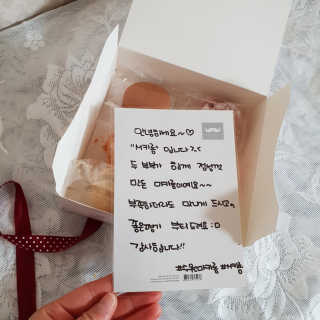 안녕하세요~♡
"서키롱" 입니다^^
두 부부가 함께 정성껏
만든 마카롱이에요~~
부족하더라도 맛나게 드시고,
좋은평가 부탁드려요 :D
감사합니다!!
#수원마카롱 #서키롱